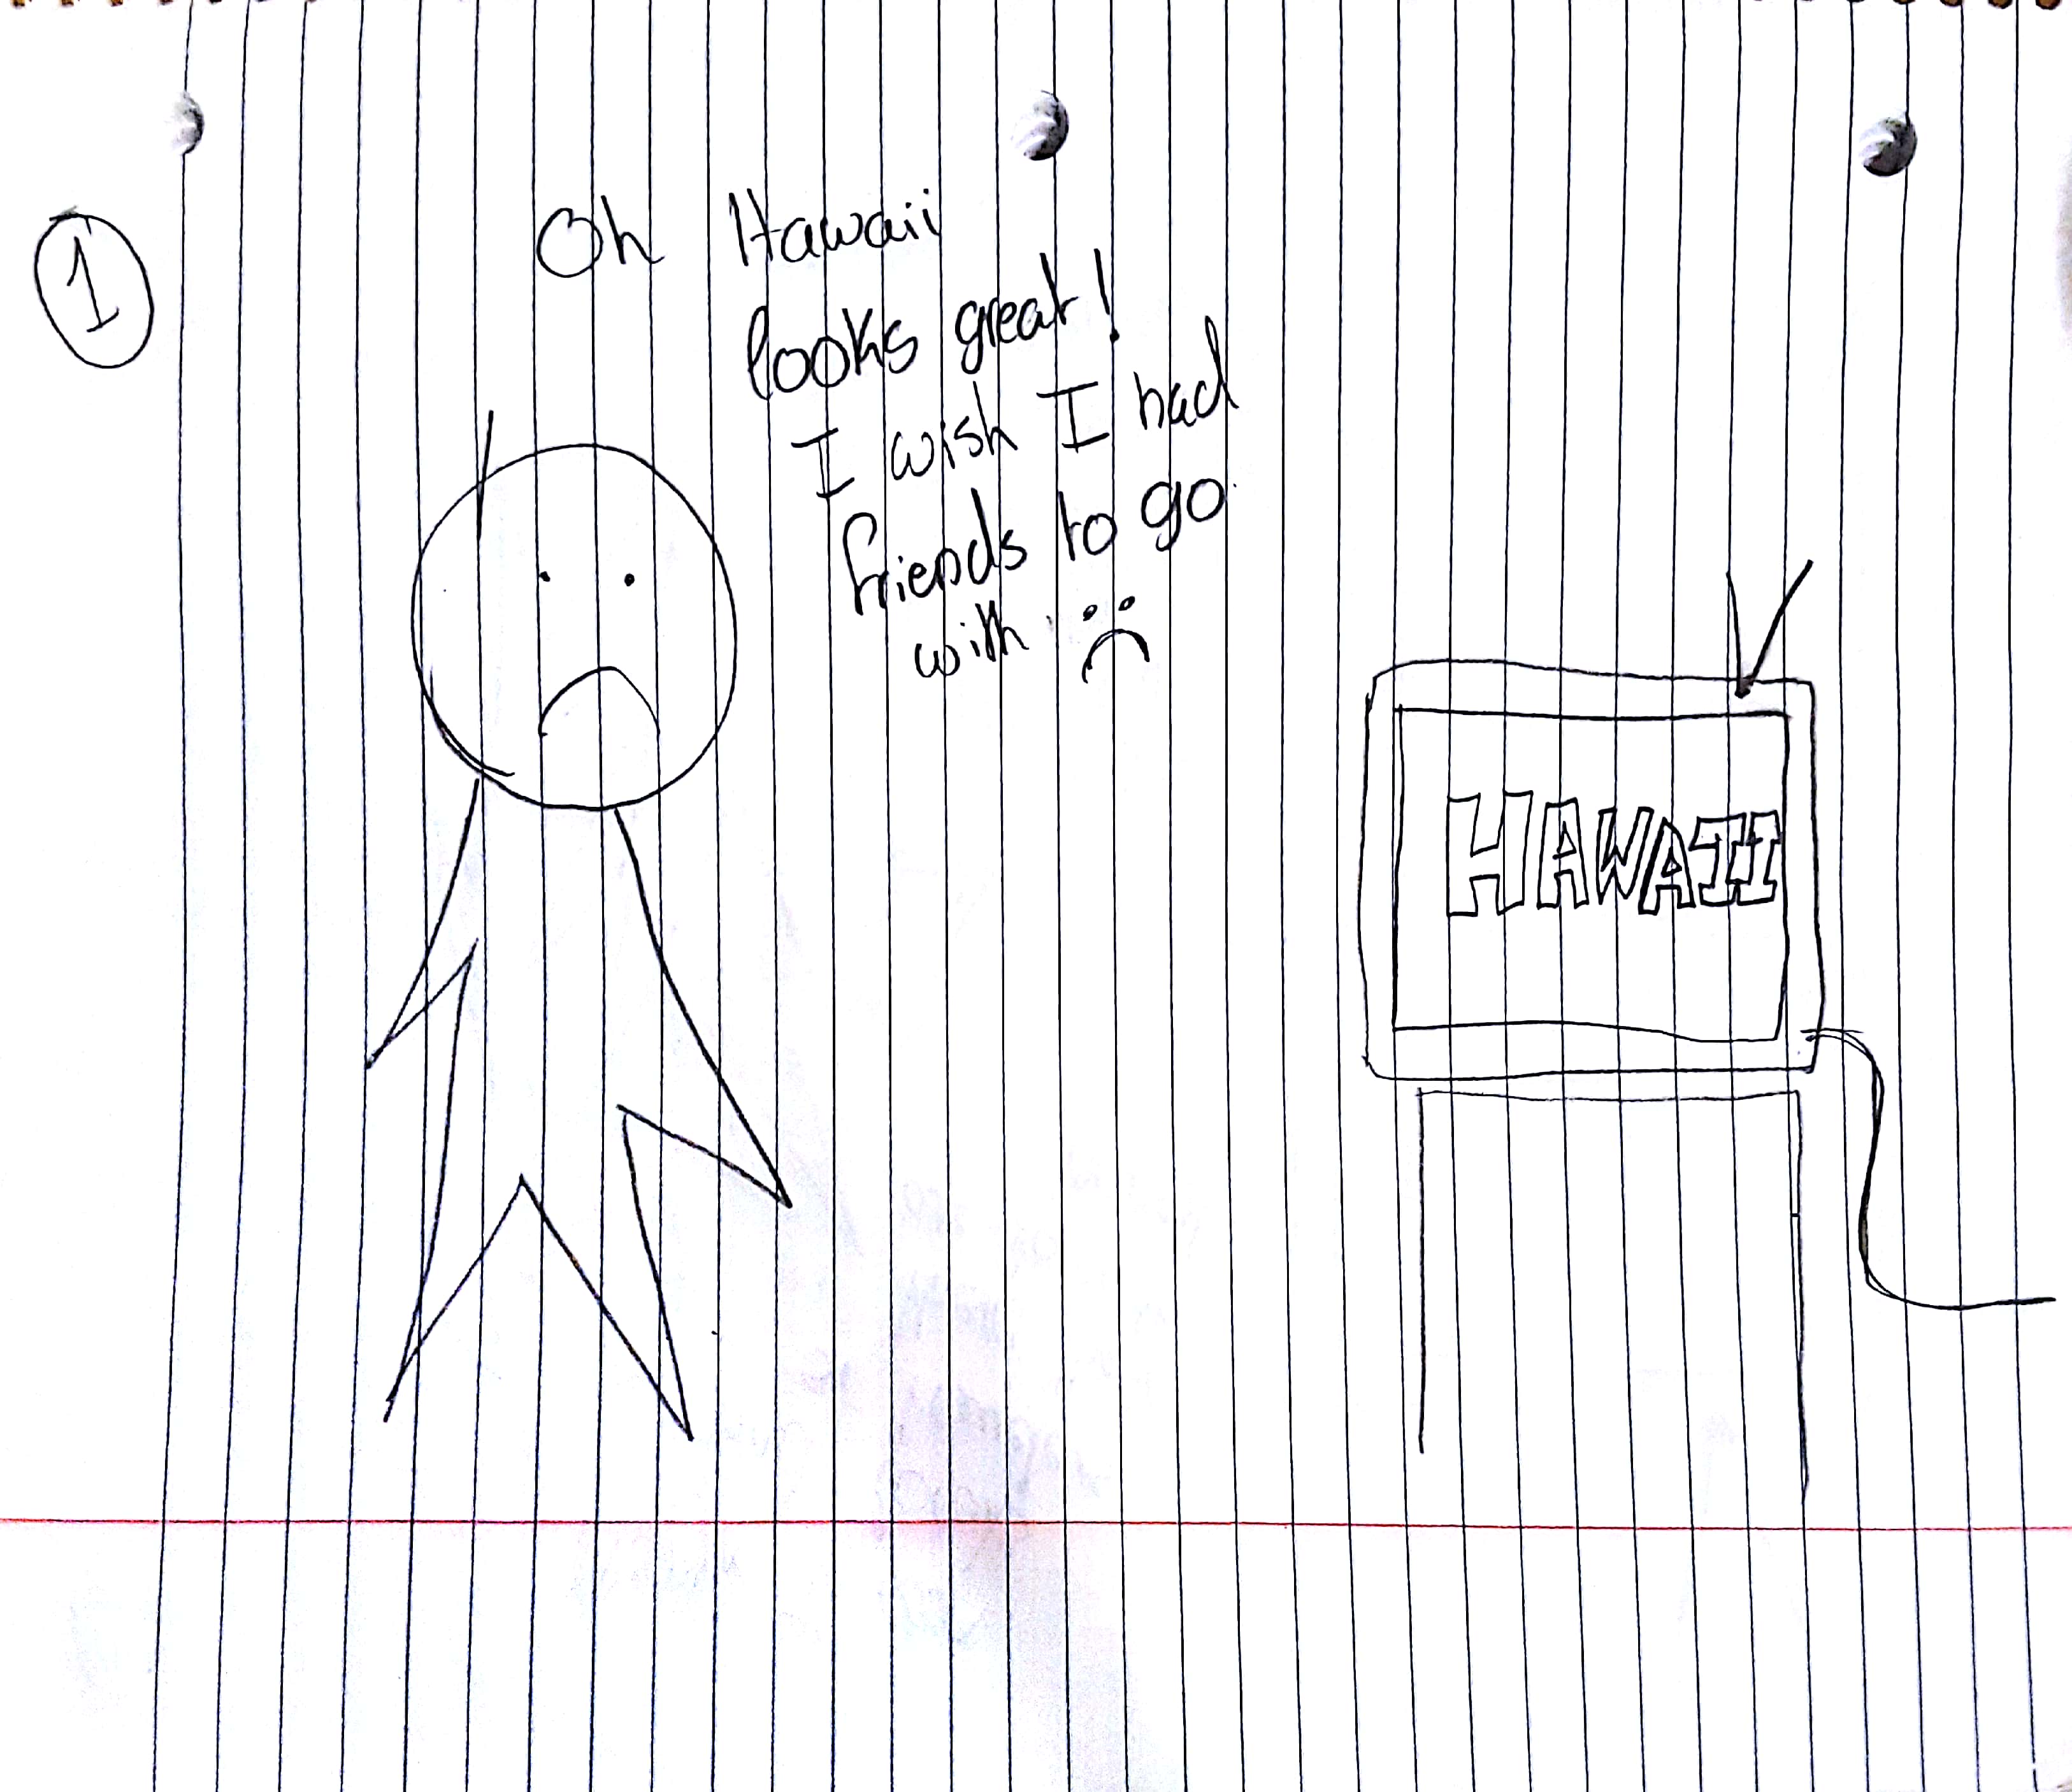 1
Oh Hawaii
looks great!
I wish I had
friends to go
with :(
HAWAII